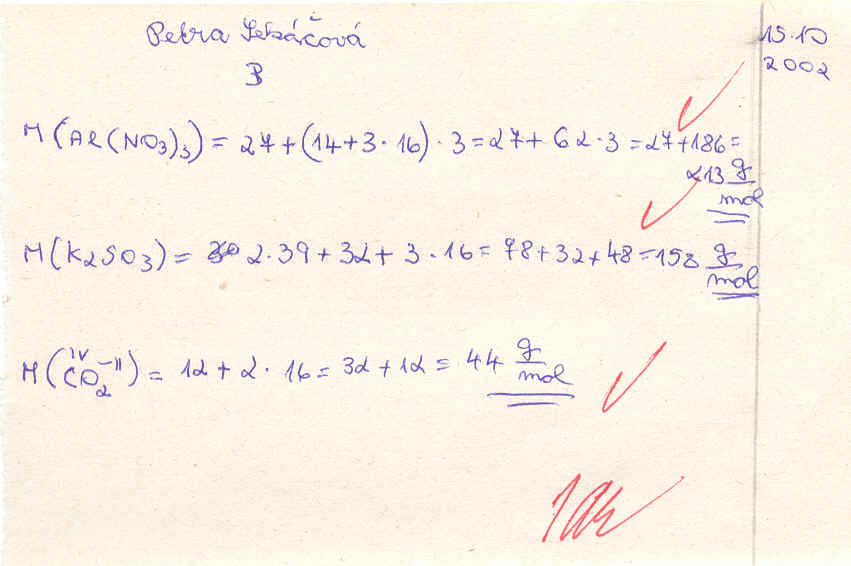 Petra
15.10
2002
B
M(Al(NO3)3) = 27+(14+3·16)·3=27+62·3=27+186=
213 g/mol
M(K2SO3) = 2·39+32+3·16=78+32+48=158 g/mol
M(CO2) = 12+2·16=32+12=44 g/mol
IV -II
1